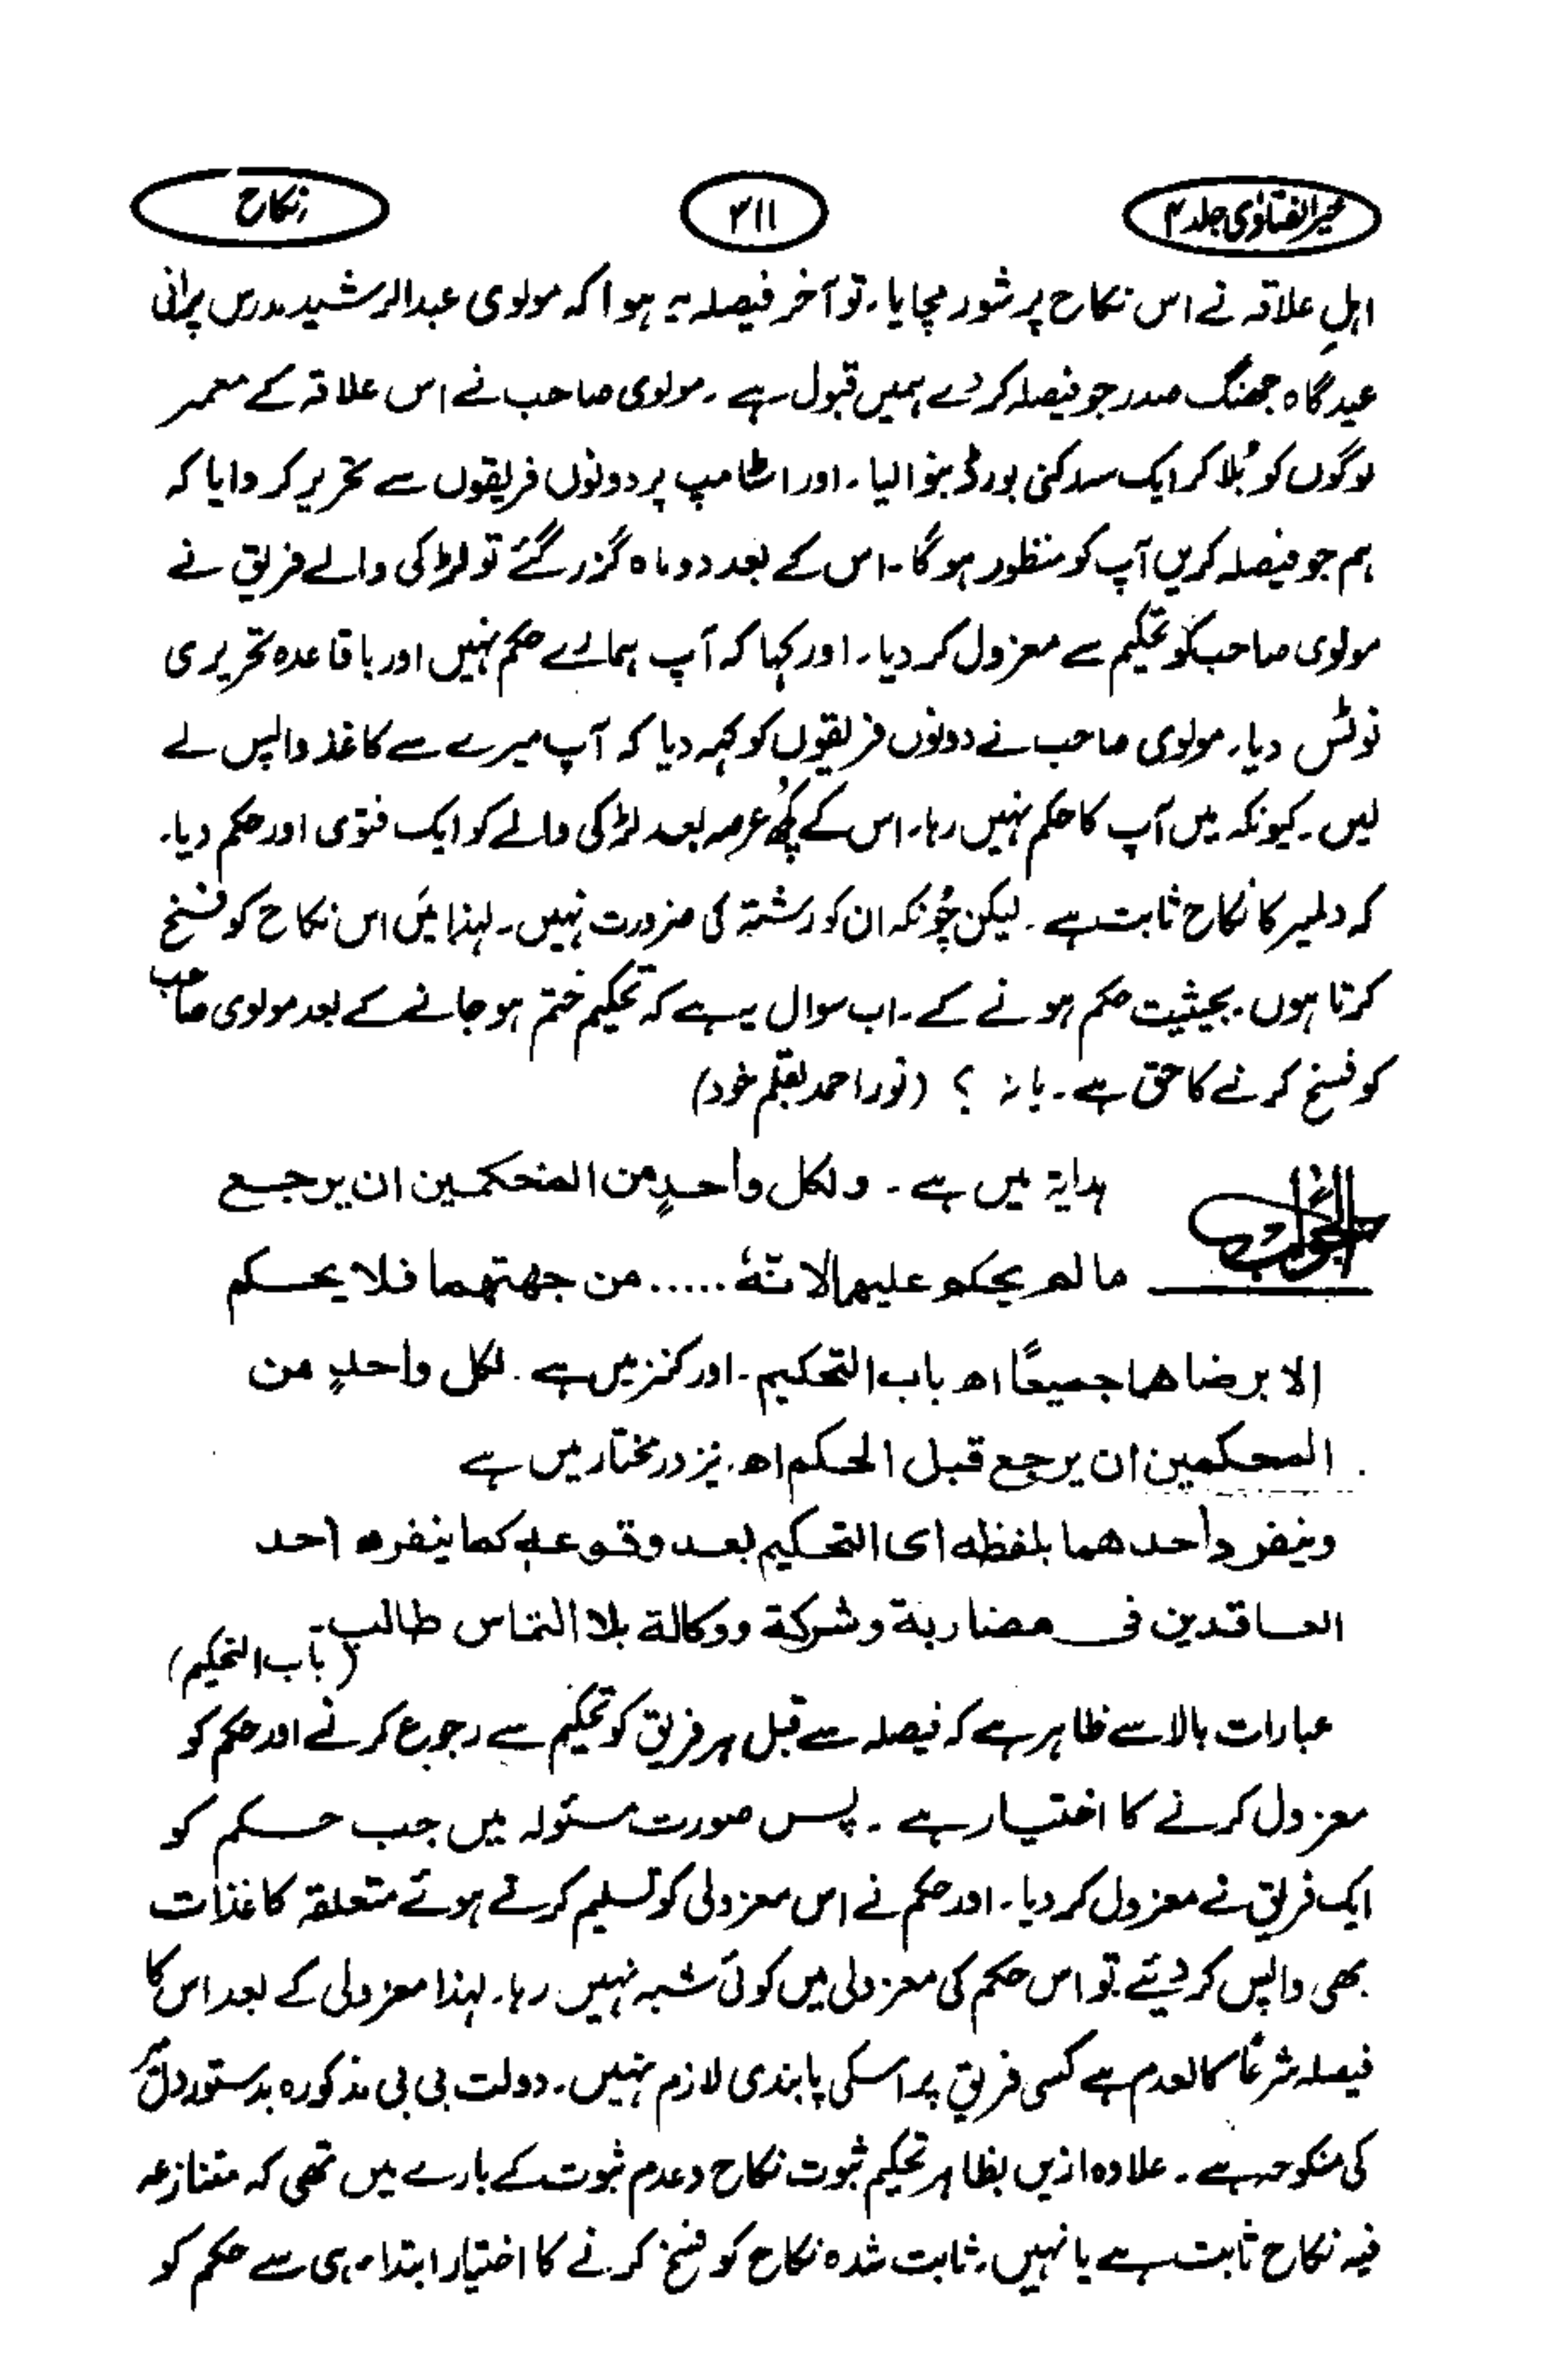 خیر الفتاوٰی جلد ۴
۳۱۱
نکاح
اہلِ علاقہ نے اس نکاح پر شور مچایا۔ تو آخر فیصلہ یہ ہوا کہ مولوی عبدالرشید مدرس پرانی
عیدگاہ جھنگ صدر جو فیصلہ کر دے ہمیں قبول ہے ۔ مولوی صاحب نے اس علاقہ کے معمر
لوگوں کو بُلا کر ایک سہ رکنی بورڈ بنوا لیا ۔ اور اسٹامپ پر دونوں فریقوں سے تحریر کروایا کہ
ہم جو فیصلہ کریں آپ کو منظور ہوگا ۔ اس کے بعد دو ماہ گزر گئے تو لڑکی والے فریق نے
مولوی صاحب کو تحکیم سے معزول کر دیا ۔ اور کہا کہ آپ ہمارے حکم نہیں اور باقاعدہ تحریری
نوٹس دیا ۔ مولوی صاحب نے دونوں فریقوں کو کہہ دیا کہ آپ میرے سے کاغذ واپس لے
لیں ۔ کیونکہ میں آپ کا حکم نہیں رہا ۔ اس کے کچھ عرصہ بعد لڑکی والے کو ایک فتوی اور حکم دیا ۔
کہ دلمیر کا نکاح ثابت ہے ۔ لیکن چُونکہ ان کو رشتہ کی ضرورت نہیں ۔ لہذا میں اس نکاح کو فسخ
کرتا ہوں ۔ بحیثیت حکم ہونے کے ۔ اب سوال یہ ہے کہ تحکیم ختم ہو جانے کے بعد مولوی صاحب
کو فسخ کرنے کا حق ہے ۔ یا نہ ؟ (نور احمد بقلم خود)
الجواب
ہدایہ میں ہے ۔ ولکل واحدٍ من المحکمین ان یرجع
مالم یحکم علیھما لانہٗ ..... من جھتھما فلا یحکم
الا برضاھما جمیعًا اھ باب التحکیم ۔ اور کنز میں ہے . لکل واحدٍ من
المحکمین ان یرجع قبل الحکم اھ . نیز درمختار میں ہے
وینفرد احدھما بلفظہ ای التحکیم بعد وقوعہ کما ینفرد احد
العاقدین فی مضاربة وشرکة ووکالة بلا التماس طالب
(باب التحکیم)
عبارات بالا سے ظاہر ہے کہ فیصلہ سے قبل ہر فریق کو تحکیم سے رجوع کرنے اور حکم کو
معزول کرنے کا اختیار ہے ۔ پس صورت مسئولہ میں جب حکم کو
ایک فریق نے معزول کر دیا ۔ اور حکم نے اس معزولی کو تسلیم کرتے ہوئے متعلقہ کاغذات
بھی واپس کر دیئے تو اس حکم کی معزولی میں کوئی شبہ نہیں رہا ۔ لہذا معزولی کے بعد اس کا
فیصلہ شرعًا کالعدم ہے کسی فریق پر اسکی پابندی لازم نہیں ۔ دولت بی بی مذکورہ بدستور دلمیر
کی منکوحہ ہے ۔ علاوہ ازیں بظاہر تحکیم ثبوت نکاح و عدم ثبوت کے بارے میں تھی کہ متنازعہ
فیہ نکاح ثابت ہے یا نہیں ۔ ثابت شدہ نکاح کو فسخ کرنے کا اختیار ابتداء ہی سے حکم کو